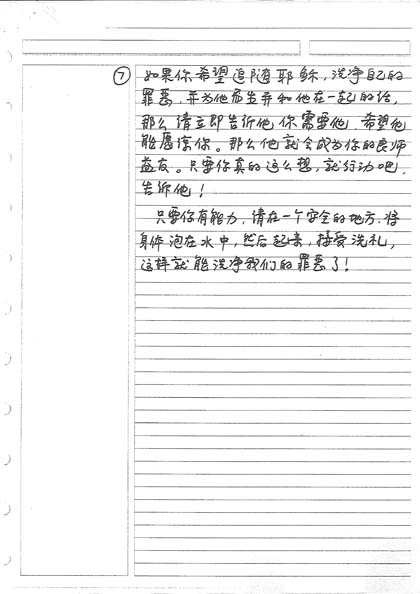 ⑦ 如果你希望追随耶稣，洗净自己的
罪恶，并为他而生并和他在一起的话，
那么请立即告诉他你需要他，希望他
能原谅你。那么他就会成为你的良师
益友。只要你真的这么想，就行动吧，
告诉他！
只要你有能力，请在一个安全的地方，将
身体泡在水中，然后起来，接受洗礼，
这样就能洗净我们的罪恶了！